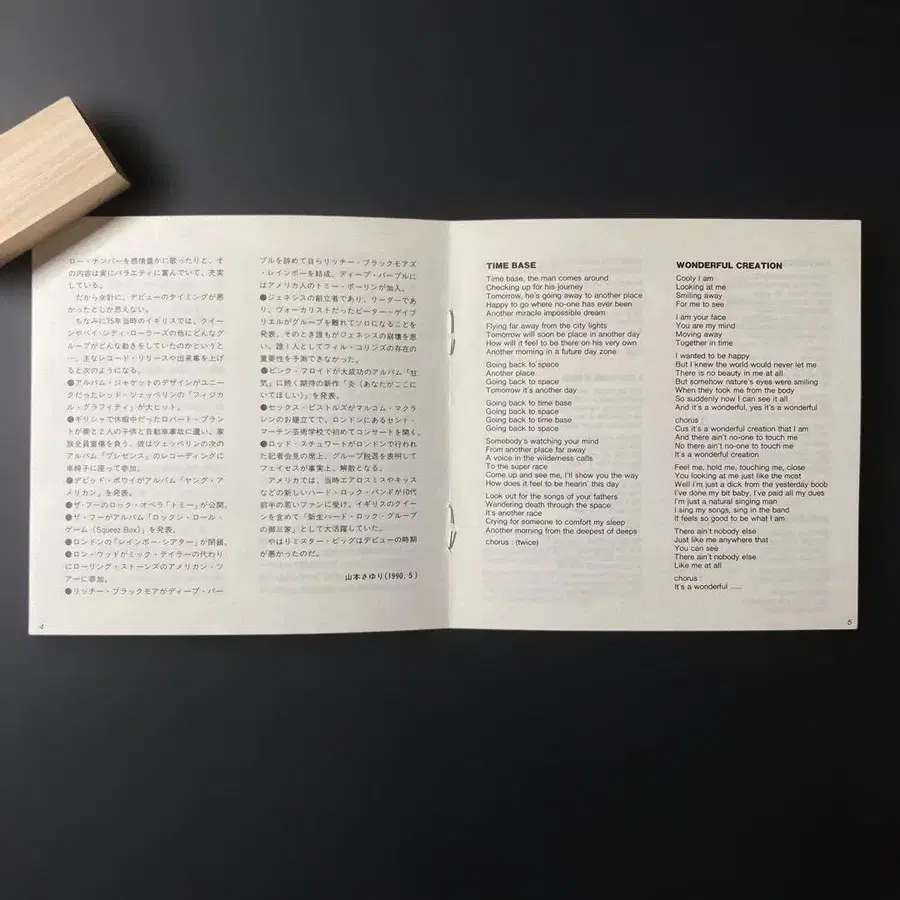 ロー・ナンバーを感情豊かに歌ったりと、そ
の内容は実にバラエティに富んでいて、充実
している。
だから余計に、デビューのタイミングが悪
かったとしか思えない。
ちなみに75年当時のイギリスでは、クイー
ンやベイ・シティ・ローラーズの他にどんなグ
ループがどんな動きをしていたのかというと
…。主なレコード・リリースや出来事を上げ
ると次のようになる。
●アルバム・ジャケットのデザインがユニー
クだったレッド・ツェッペリンの「フィジカ
ル・グラフィティ」が大ヒット。
●ギリシャで休暇中だったロバート・プラン
トが妻と2人の子供と自動車事故に遭い、家
族全員重傷を負う。彼はツェッペリンの次の
アルバム「プレゼンス」のレコーディングに
車椅子に座って参加。
●デビッド・ボウイがアルバム「ヤング・ア
メリカン」を発表。
●ザ・フーのロック・オペラ「トミー」が公開。
●ザ・フーがアルバム「ロックン・ロール・
ゲーム(Squeez Box)」を発表。
●ロンドンの「レインボー・シアター」が閉鎖。
●ロン・ウッドがミック・テイラーの代わり
にローリング・ストーンズのアメリカン・ツ
アーに参加。
●リッチー・ブラックモアがディープ・パー
プルを辞めて自らリッチー・ブラックモアズ
・レインボーを結成。ディープ・パープルに
はアメリカ人のトミー・ボーリンが加入。
●ジェネシスの創立者であり、リーダーであ
り、ヴォーカリストだったピーター・ゲイブ
リエルがグループを離れてソロになることを
発表。そのとき誰もがジェネシスの崩壊を思
い、誰1人としてフィル・コリンズの存在の
重要性を予測できなかった。
●ピンク・フロイドが大成功のアルバム「狂
気」に続く期待の新作「炎(あなたがここに
いてほしい)」を発表。
●セックス・ピストルズがマルコム・マクラ
レンのお膳立てで、ロンドンにあるセント・
マーチン芸術学校で初めてコンサートを開く。
●ロッド・スチュワートがロンドンで行われ
た記者会見の席上、グループ脱退を表明して
フェイセスが事実上、解散となる。
アメリカでは、当時エアロスミスやキッス
などの新しいハード・ロック・バンドが10代
前半の若いファンに受け、イギリスのクイー
ンを含めて「新生ハード・ロック・グループ
の御三家」として大活躍していた。
やはりミスター・ビッグはデビューの時期
が悪かったのだ。
山本さゆり(1990.5)
4
TIME BASE
Time base, the man comes around
Checking up for his journey
Tomorrow, he's going away to another place
Happy to go where no-one has ever been
Another miracle impossible dream
Flying far away from the city lights
Tomorrow will soon be place in another day
How will it feel to be there on his very own
Another morning in a future day zone
Going back to space
Another place
Going back to space
Tomorrow it's another day
Going back to time base
Going back to space
Going back to time base
Going back to space
Somebody's watching your mind
From another place far away
A voice in the wilderness calls
To the super race
Come up and see me, I'll show you the way
How does it feel to be hearin' this day
Look out for the songs of your fathers
Wandering death through the space
It's another race
Crying for someone to comfort my sleep
Another morning from the deepest of deeps
chorus : (twice)
WONDERFUL CREATION
Cooly I am
Looking at me
Smiling away
For me to see
I am your face
You are my mind
Moving away
Together in time
I wanted to be happy
But I knew the world would never let me
There is no beauty in me at all
But somehow nature's eyes were smiling
When they took me from the body
So suddenly now I can see it all
And it's a wonderful, yes it's a wonderful
chorus :
Cus it's a wonderful creation that I am
And there ain't no-one to touch me
No there ain't no-one to touch me
It's a wonderful creation
Feel me, hold me, touching me, close
You looking at me just like the most
Well I'm just a dick from the yesterday boob
I've done my bit baby, I've paid all my dues
I'm just a natural singing man
I sing my songs, sing in the band
It feels so good to be what I am
There ain't nobody else
Just like me anywhere that
You can see
There ain't nobody else
Like me at all
chorus :
It's a wonderful .....
5